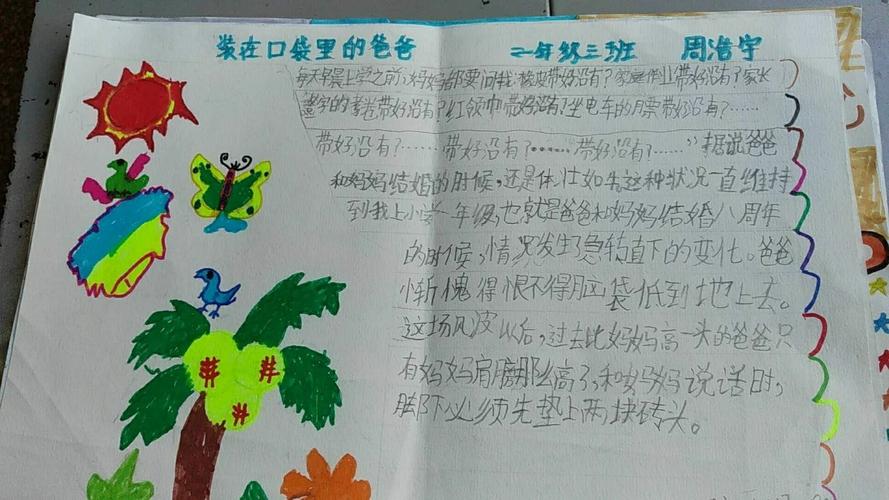 装在口袋里的爸爸 二年级三班 周浩宇
每天早晨上学之前,妈妈都要问我:橡皮带好没有?家庭作业带好没有?家长
签字的考卷带好没有?红领巾带好没有?坐电车的月票带好没有?……
带好没有?……带好没有?……带好没有?……”据说爸爸
和妈妈结婚的时候,还是体壮如牛这种状况一直维持
到我上小学一年级,也就是爸爸和妈妈结婚八周年
的时候,情况发生了急转直下的变化。爸爸
惭愧得恨不得脑袋低到地上去。
这场风波以后,过去比妈妈高一头的爸爸只
有妈妈肩膀那么高了,和妈妈说话时,
脚下必须先垫上两块砖头。